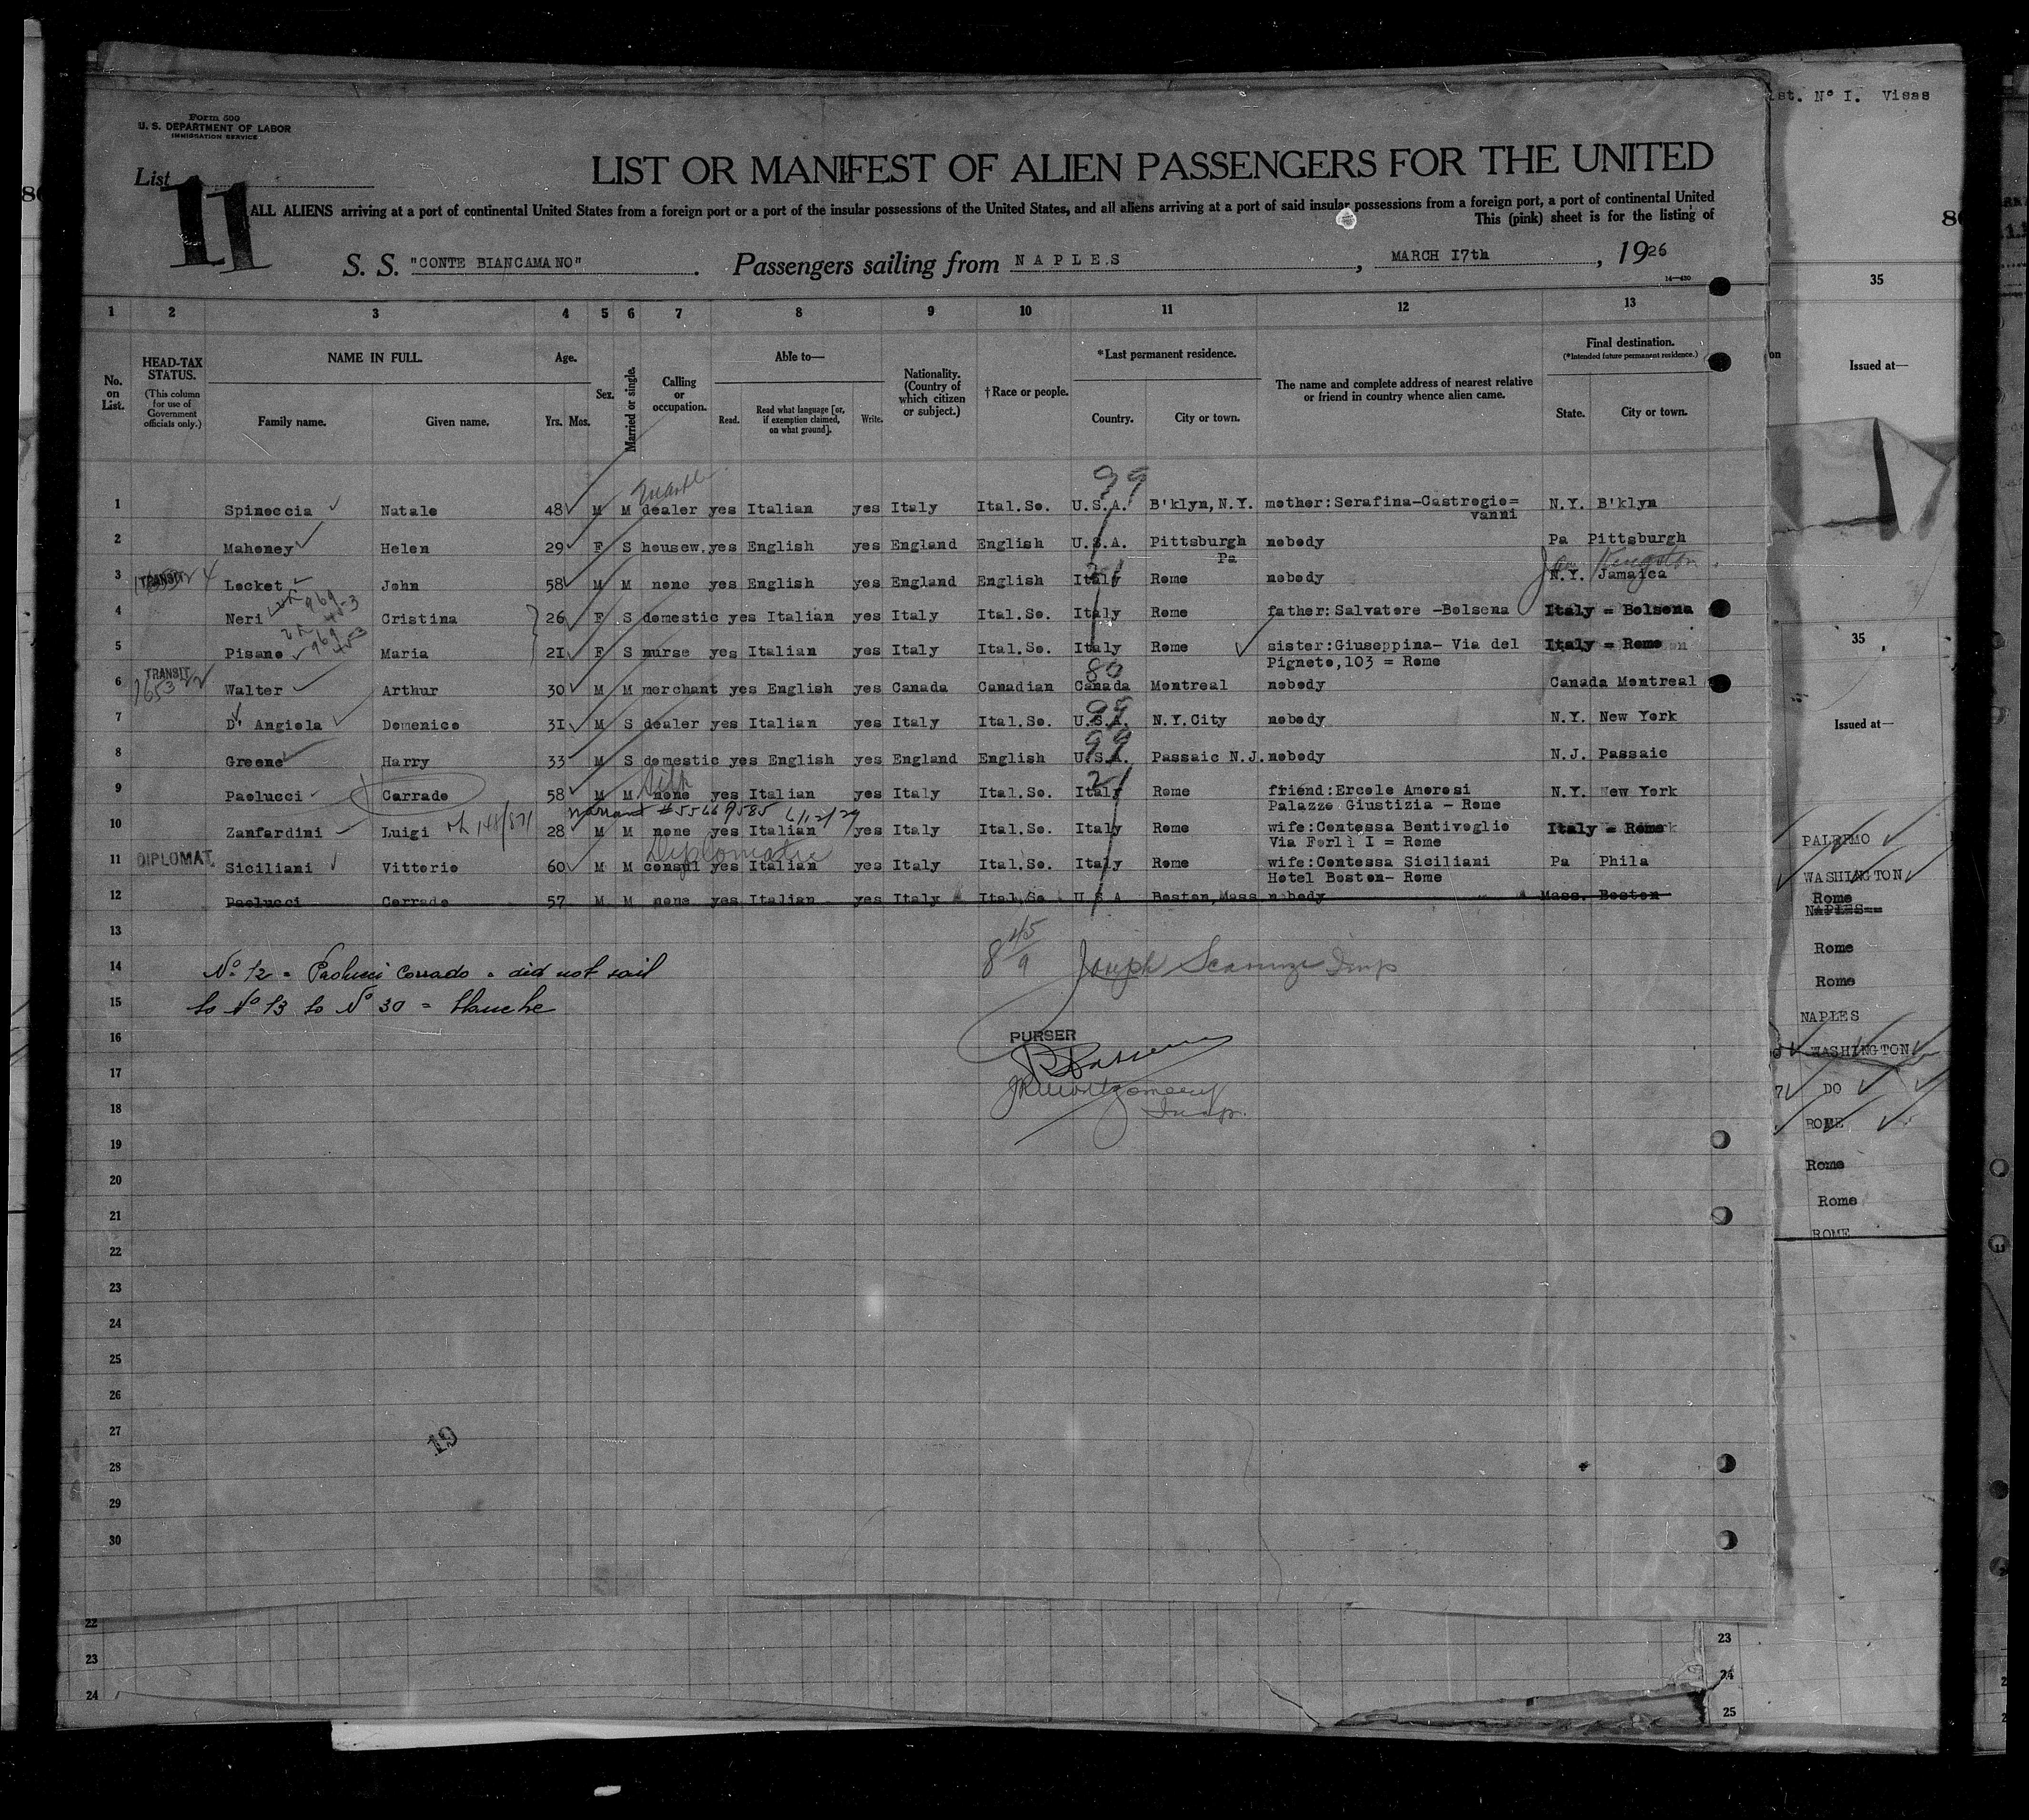 Form 500
U. S. DEPARTMENT OF LABOR
IMMIGRATION SERVICE
List
11
LIST OR MANIFEST OF ALIEN PASSENGERS FOR THE UNITED
ALL ALIENS arriving at a port of continental United States from a foreign port or a port of the insular possessions of the United States, and all aliens arriving at a port of said insular possessions from a foreign port, a port of continental United
This (pink) sheet is for the listing of
S. S. "CONTE BIANCAMANO". Passengers sailing from NAPLES, MARCH 17th, 1926
14—430
1 2 3 4 5 6 7 8 9 10 11 12 13
No. on List.
HEAD-TAX STATUS.
(This column for use of Government officials only.)
NAME IN FULL.
Family name. Given name.
Age.
Yrs. Mos.
Sex.
Married or single.
Calling or occupation.
Able to—
Read. Read what language [or, if exemption claimed, on what ground]. Write.
Nationality. (Country of which citizen or subject.)
†Race or people.
*Last permanent residence.
Country. City or town.
The name and complete address of nearest relative or friend in country whence alien came.
Final destination.
(*Intended future permanent residence.)
State. City or town.
99
1 Spinoccia Natale 48 M M dealer yes Italian yes Italy Ital.So. U.S.A. B'klyn, N.Y. mother:Serafina-Castrogio=vanni N.Y. B'klyn
2 Mahoney Helen 29 F S housew. yes English yes England English U.S.A. Pittsburgh Pa nobody Pa Pittsburgh
Jam Kingston
3 TRANSIT Locket John 58 M M none yes English yes England English Italy Rome nobody N.Y. Jamaica
4 Neri Cristina 26 F S domestic yes Italian yes Italy Ital.So. Italy Rome father:Salvatore -Bolsena Italy = Bolsena
5 Pisano Maria 21 F S nurse yes Italian yes Italy Ital.So. Italy Rome sister:Giuseppina- Via del Pigneto,103 = Rome Italy = Rome
80
6 TRANSIT Walter Arthur 30 M M merchant yes English yes Canada Canadian Canada Montreal nobody Canada Montreal
99
7 D' Angiola Domenico 31 M S dealer yes Italian yes Italy Ital.So. U.S.A. N.Y.City nobody N.Y. New York
99
8 Greene Harry 33 M S domestic yes English yes England English U.S.A. Passaic N.J. nobody N.J. Passaic
21
9 Paolucci Corrado 58 M M none yes Italian yes Italy Ital.So. Italy Rome friend:Ercole Amorosi Palazzo Giustizia - Rome N.Y. New York
Warrant #55669585 6/12/29
10 Zanfardini Luigi 28 M M none yes Italian yes Italy Ital.So. Italy Rome wife:Contessa Bentivoglio Via Forlì I = Rome Italy = Rome
Diplomatic
11 DIPLOMAT. Siciliani Vittorio 60 M M consul yes Italian yes Italy Ital.So. Italy Rome wife:Contessa Siciliani Hotel Boston- Rome Pa Phila
12 Paolucci Corrado 57 M M none yes Italian yes Italy Ital.So. U.S.A Boston, Mass nobody Mass. Boston
13
14 No. 12 = Paolucci Corrado = did not sail
Joseph Insp
15 to No 13 to No 30 = blanche
16
PURSER
17
JR Montgomery
18
Insp.
19
20
21
22
23
24
25
26
27
28
29
30
19
22
23
24
23
24
25
List. No I. Visas
35
Issued at—
35
Issued at—
PALERMO
WASHINGTON
Rome
NAPLES
Rome
Rome
NAPLES
WASHINGTON
DO
ROME
Rome
Rome
ROME